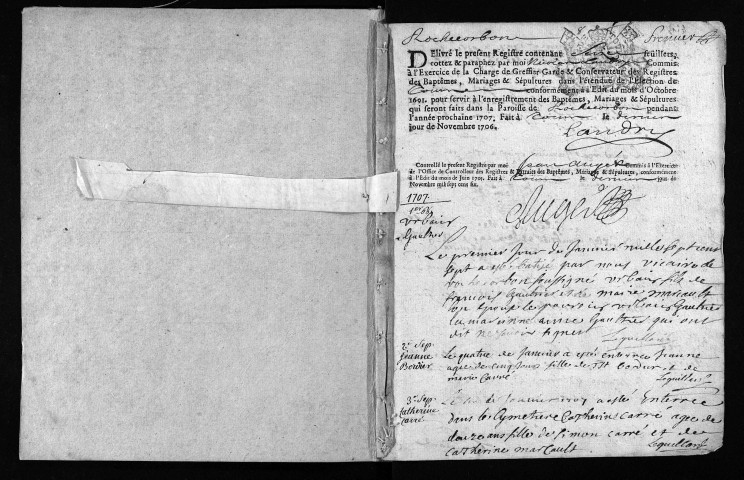 Rochecorbon premier
DElivré le present Registre contenant feuillets,
cottez & paraphez par moi Commis
à l'Exercice de la Charge de Greffier Garde & Conservateur des Registres
des Baptêmes, Mariages & Sépultures dans l'étenduë de l'Election de
conformément à l'Edit du mois d'Octobre
1691. pour servir à l'enregistrement des Baptêmes, Mariages & Sépultures
qui seront faits dans la Paroisse de Rochecorbon pendant
l'année prochaine 1707. Fait à Tours le dernier
jour de Novembre 1706.
Landry
Controllé le present Registre par moi Jean Augé Commis à l'Exercice
de l'Office de Controlleur des Registres & Extraits des Baptêmes, Mariages & Sépultures, conformément
à l'Edit du mois de Juin 1705. Fait à Tours le dernier jour de
Novembre mil sept cens six.
Augé
1707
1er
Urbain
Gaultier
Le premier Jour de Janvier mille sept cent
sept a esté batisé par nous vicaire de
Rochecorbon soussigné Urbain fils de
françois Gaultier et de marie
le parrain urbain Gaultier
la maraine anne Gaultier qui ont
dit ne sçavoir signer
Lequillant
2e Sep.
Jeanne
Bordier
Le quatre de Janvier a esté enterrée Jeanne
agée de cinq Jours fille de Bordier et de
marie Carré Lequillant
3e Sep.
Catherine
Carré
Le de Janvier 1707 a esté Enterrée
dans le Cymetiere Catherine Carré agée de
douze ans fille de Simon carré et de
Catherine marcault. Lequillant